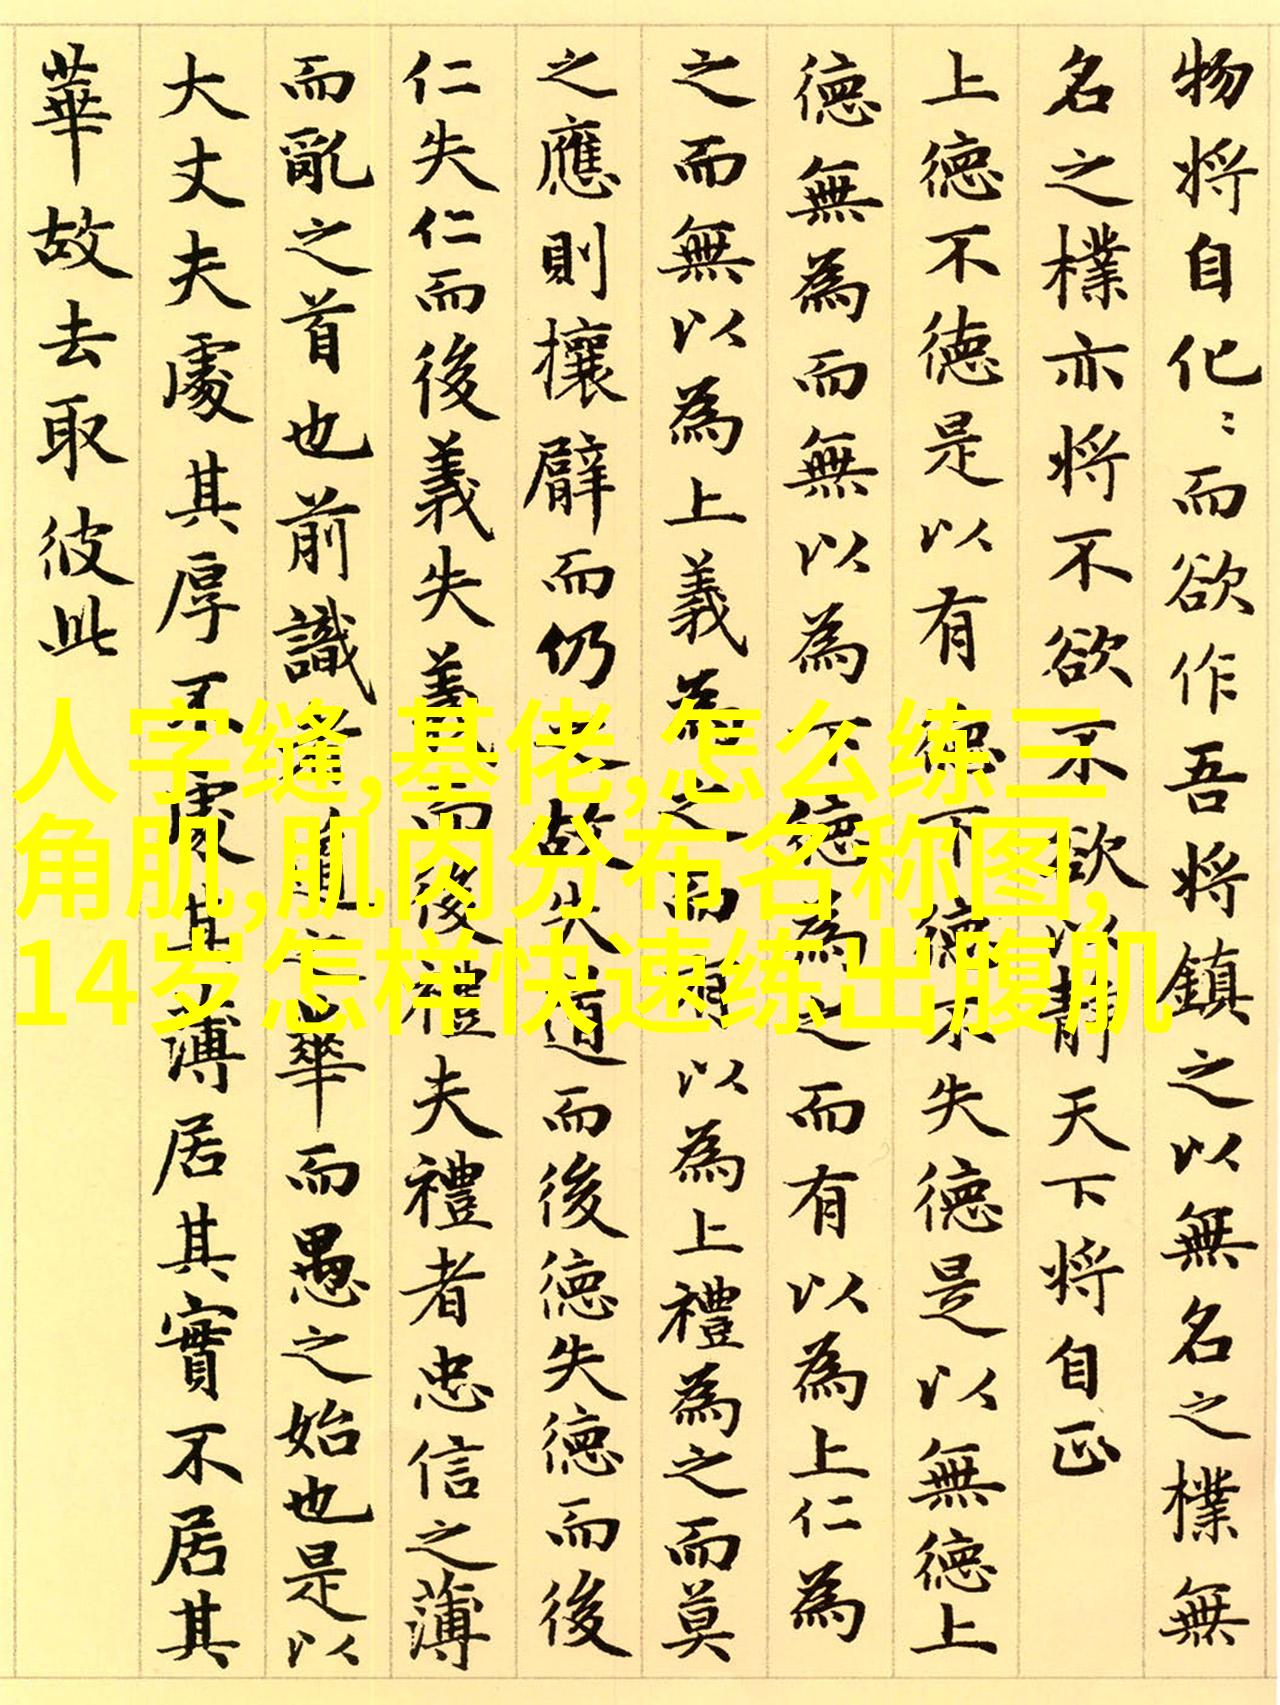 物将自化〻而欲作吾将鎮之以無名之樸無
名之樸亦将不欲不欲以靜天下将自正
上德不德是以有德下德不失德是以無德上
德無為而無以為下德為之而有以為上仁為
之而無以為上義為之而有以為上禮為之而莫
之應則攘臂而仍之故失道而後德失德而後
仁失仁而後義失義而後禮夫禮者忠信之薄
而亂之首也前識者道之華而愚之始也是以
大丈夫處其厚不處其薄居其實不居其
華故去取彼此
人字缝,基佬,怎么练三
角肌,肌肉分布名称图,
14岁怎样快速练出腹肌